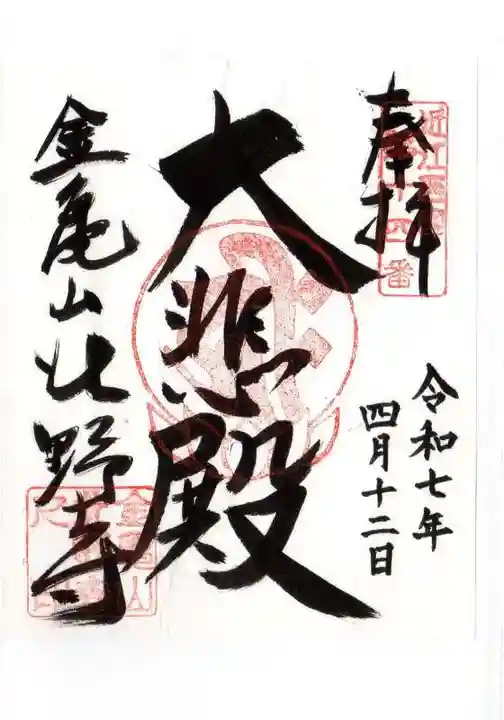 奉拝
近江
四番
令和七年
四月十二日
大悲殿
金亀山北野寺